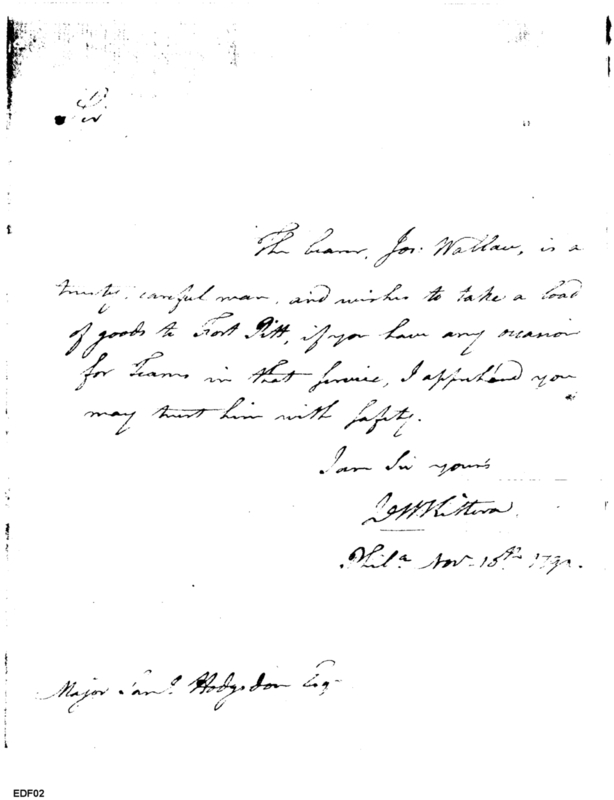 Sir
The bearer, Jos. Wallace, is a
trusty, careful man, and wishes to take a load
of goods to Fort Pitt, if you have any occasion
for Teams in that service, I apprehend you
may trust him with safety.
I am Sir yours
J W Kittera
Phila Nov. 16th
Major Saml. Hodgsdon Esqr
EDF02